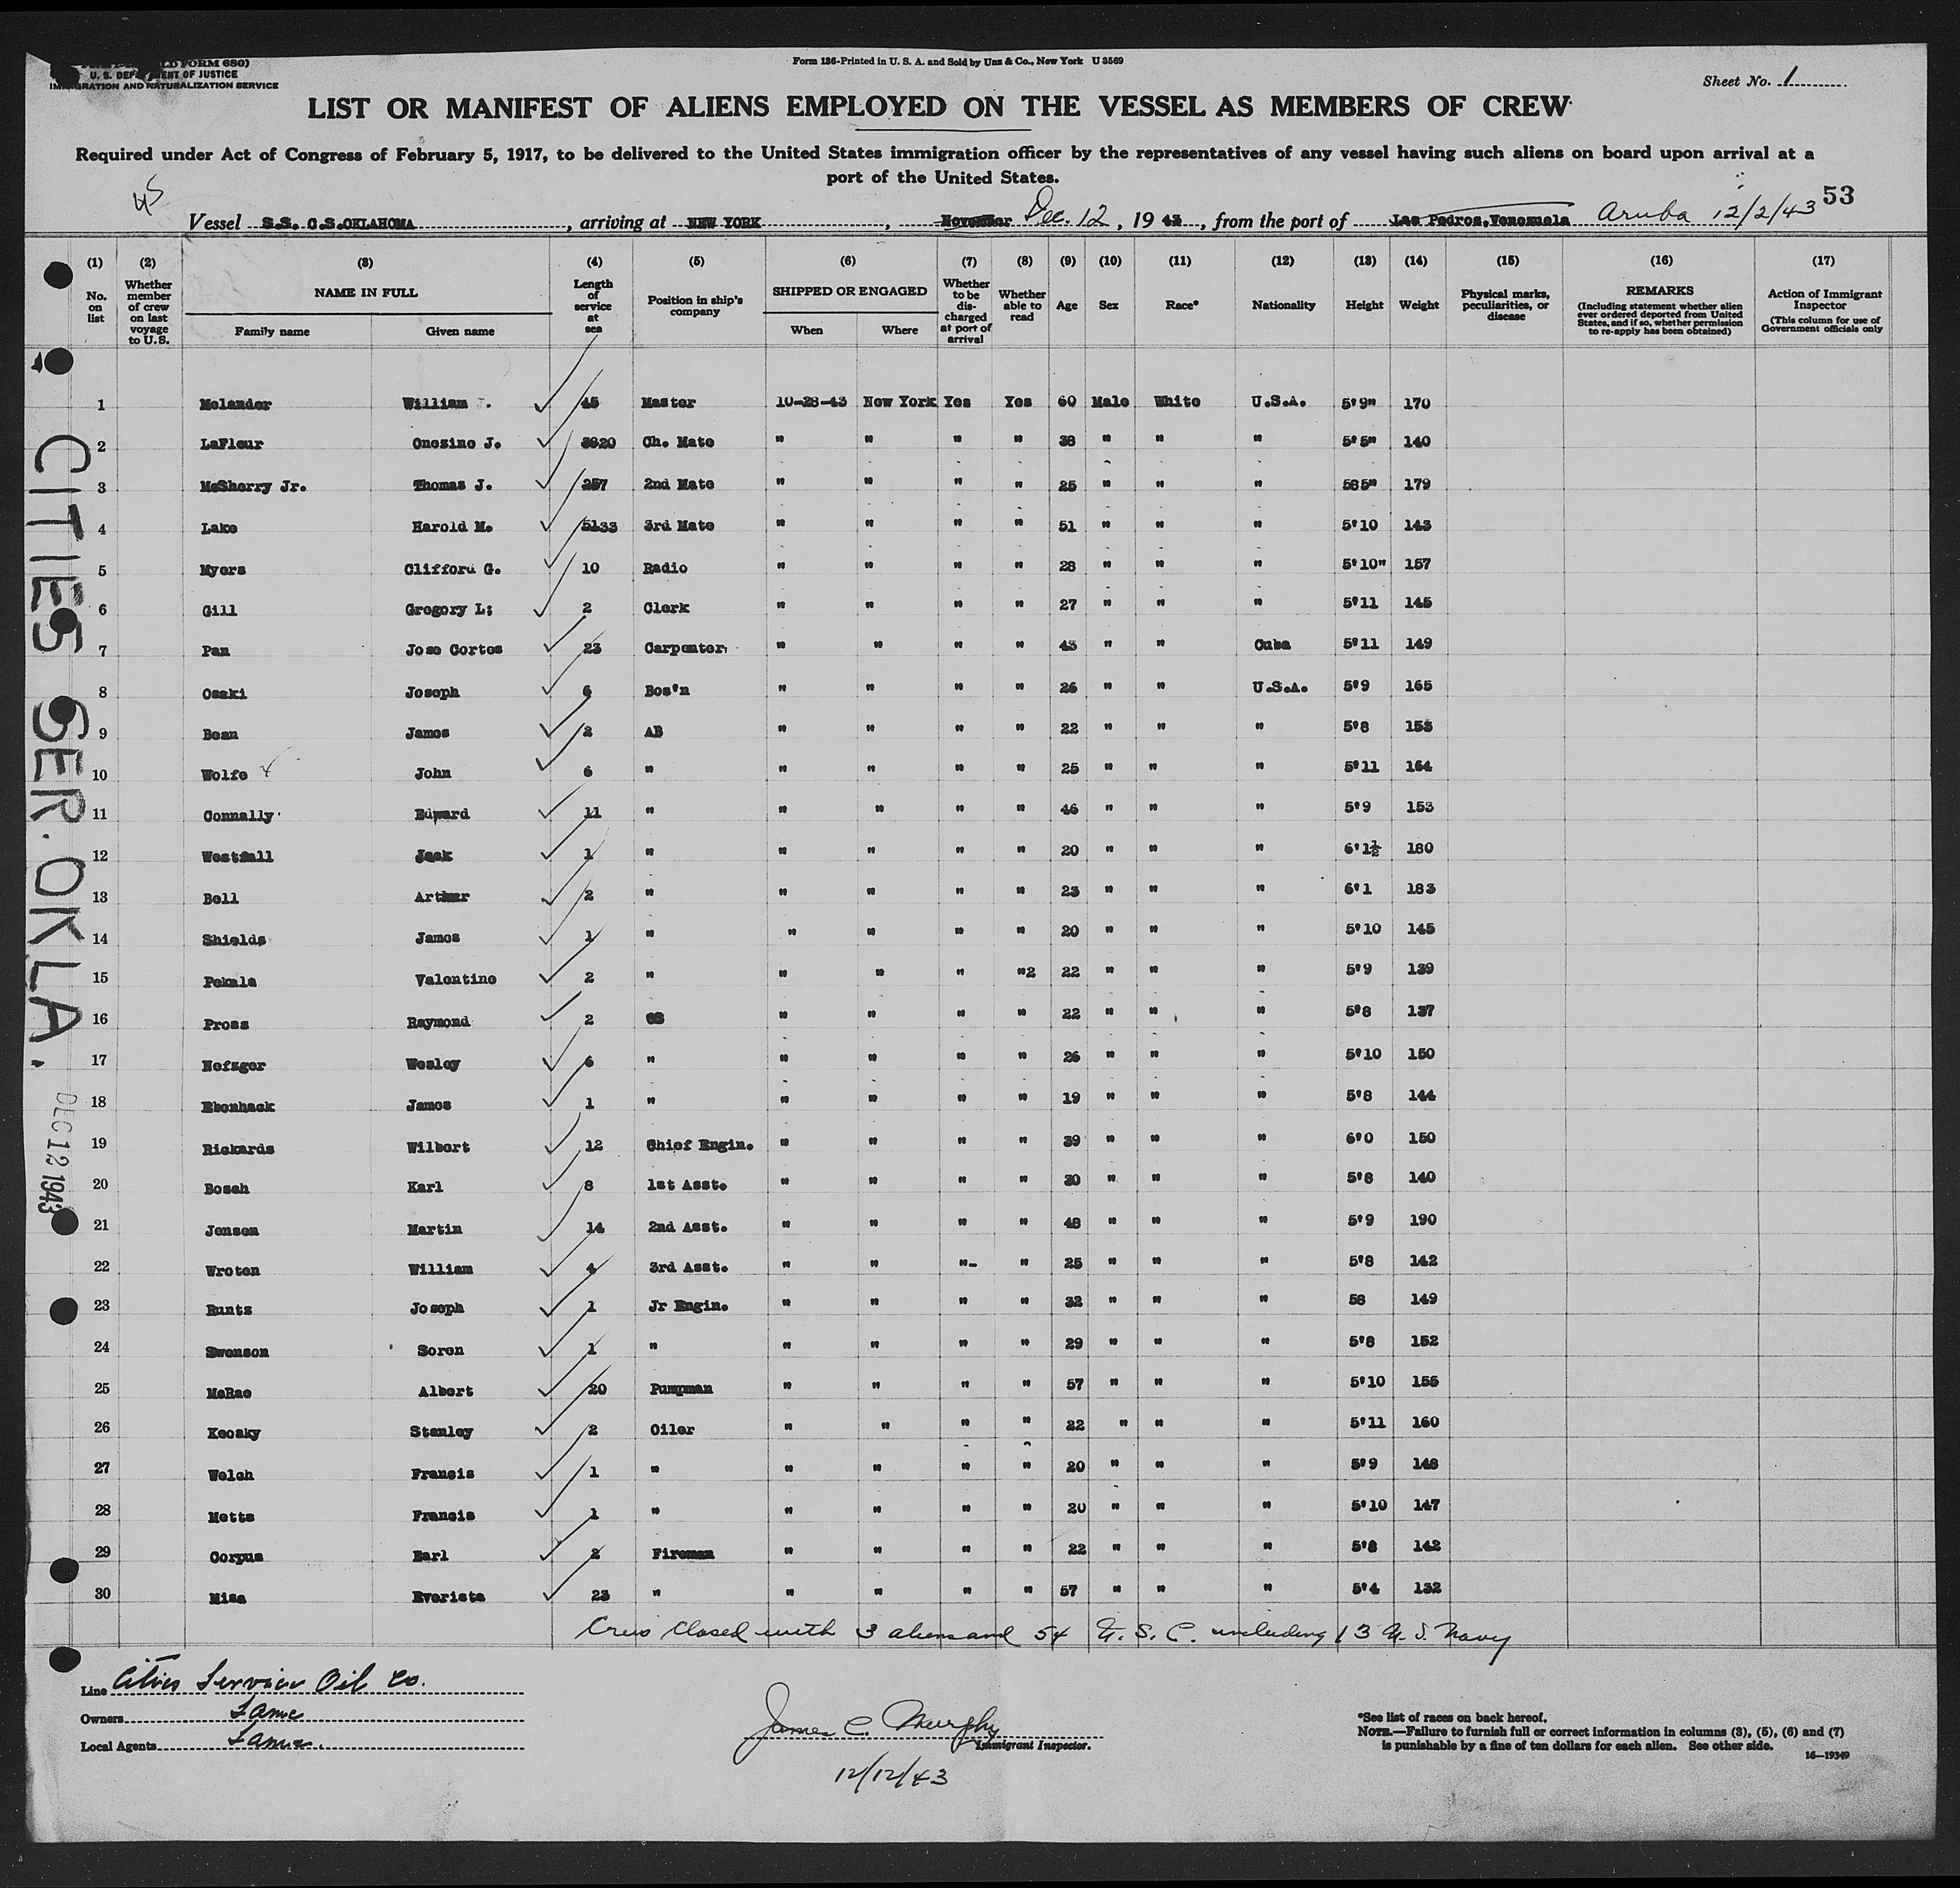 LD FORM 680)
U. S. DEPARTMENT OF JUSTICE
IMMIGRATION AND NATURALIZATION SERVICE
Form 136-Printed in U. S. A. and Sold by Unz & Co., New York U 3569
Sheet No. 1
LIST OR MANIFEST OF ALIENS EMPLOYED ON THE VESSEL AS MEMBERS OF CREW
Required under Act of Congress of February 5, 1917, to be delivered to the United States immigration officer by the representatives of any vessel having such aliens on board upon arrival at a
port of the United States.
53
Vessel S.S. C.S.OKLAHOMA, arriving at NEW YORK, November Dec. 12, 1943, from the port of Las Pedros, Venezuela Aruba 12/2/43
(1) (2) (3) (4) (5) (6) (7) (8) (9) (10) (11) (12) (13) (14) (15) (16) (17)
No. on list
Whether member of crew on last voyage to U.S.
NAME IN FULL
Family name Given name
Length of service at sea
Position in ship's company
SHIPPED OR ENGAGED
When Where
Whether to be discharged at port of arrival
Whether able to read
Age
Sex
Race*
Nationality
Height
Weight
Physical marks, peculiarities, or disease
REMARKS (Including statement whether alien ever ordered deported from United States, and if so, whether permission to re-apply has been obtained)
Action of Immigrant Inspector (This column for use of Government officials only
1 Melander William . 45 Master 10-28-43 New York Yes Yes 60 Male White U.S.A. 5'9" 170
2 LaFleur Onesine J. 3920 Ch. Mate " " " " 38 " " " 5'5" 140
3 McSherry Jr. Thomas J. 257 2nd Mate " " " " 25 " " " 585" 179
4 Lake Harold M. 5133 3rd Mate " " " " 51 " " " 5'10 143
5 Myers Clifford G. 10 Radio " " " " 28 " " " 5'10" 157
6 Gill Gregory L; 2 Clerk " " " " 27 " " " 5'11 145
7 Pan Jose Cortes 23 Carpenter " " " " 43 " " Cuba 5'11 149
8 Osaki Joseph 6 Bos'n " " " " 26 " " U.S.A. 5'9 165
9 Bean James 2 AB " " " " 22 " " " 5'8 153
10 Wolfe John 6 " " " " " 25 " " " 5'11 164
11 Connally Edward 11 " " " " " 46 " " " 5'9 153
12 Westfall Jack 1 " " " " " 20 " " " 6'1½ 180
13 Bell Arthur 2 " " " " " 23 " " " 6'1 183
14 Shields James 1 " " " " " 20 " " " 5'10 145
15 Pekala Valentine 2 " " " " "2 22 " " " 5'9 139
16 Pross Raymond 2 OS " " " " 22 " " " 5'8 137
17 Nefzger Wesley 6 " " " " " 26 " " " 5'10 150
18 Ebenhack James 1 " " " " " 19 " " " 5'8 144
19 Rickards Wilbert 12 Chief Engin. " " " " 39 " " " 6'0 150
20 Bosch Karl 8 1st Asst. " " " " 30 " " " 5'8 140
21 Jensen Martin 14 2nd Asst. " " " " 48 " " " 5'9 190
22 Wroten William 4 3rd Asst. " " "- " 25 " " " 5'8 142
23 Runtz Joseph 1 Jr Engin. " " " " 32 " " " 58 149
24 Swenson Soren 1 " " " " " 29 " " " 5'8 152
25 McRae Albert 20 Pumpman " " " " 57 " " " 5'10 155
26 Keosky Stanley 2 Oiler " " " " 22 " " " 5'11 160
27 Welch Francis 1 " " " " " 20 " " " 5'9 148
28 Metts Francis 1 " " " " " 20 " " " 5'10 147
29 Corpus Earl 2 Fireman " " " " 22 " " " 5'8 142
30 Misa Everista 23 " " " " " 57 " " " 5'4 132
Crew closed with 3 aliens and 54 U. S. C. including 13 U. S. Navy
CITIES SER. OKLA.
DEC 12 1943
Line Cities Service Oil Co.
Owners Same
Local Agents Same
James C. Murphy
Immigrant Inspector.
12/12/43
*See list of races on back hereof.
NOTE.—Failure to furnish full or correct information in columns (3), (5), (6) and (7)
is punishable by a fine of ten dollars for each alien. See other side.
16—19349